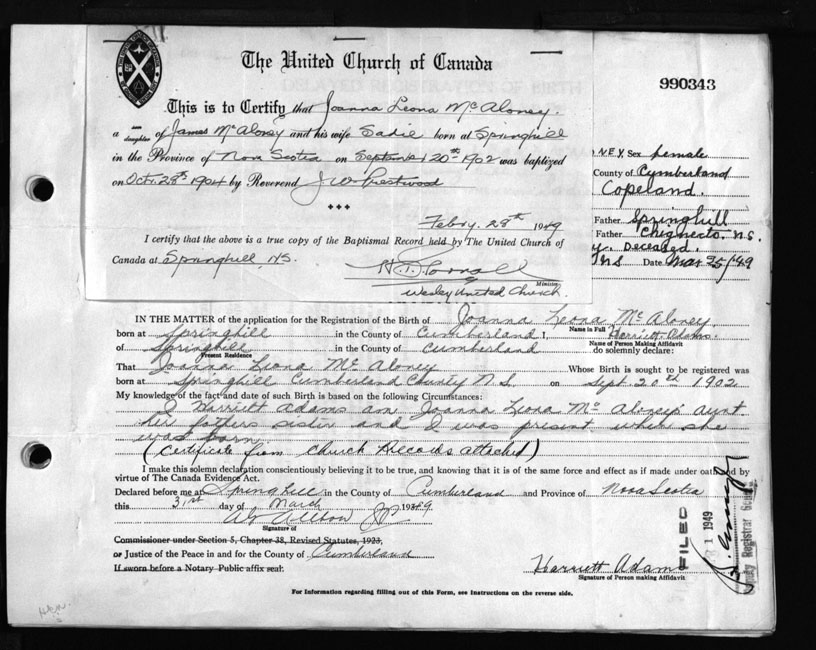 The United Church of Canada
990343
This is to Certify that Joanna Leona McAloney.
a son daughter of James McAloney and his wife Sadie born at Springhill
in the Province of Nova Scotia on September 20th 1902 was baptized
on Oct. 28th 1904 by Reverend J W Prestwood
Febry. 28th 1949
I certify that the above is a true copy of the Baptismal Record held by The United Church of
Canada at Springhill, NS.
Minister
Wesley United Church.
NEY. Sex female
County of Cumberland
Copeland.
Father Springhill
Father Chignecto. N.S.
Deceased.
NS Date Mar 25/49
IN THE MATTER of the application for the Registration of the Birth of Joanna Leona McAloney.
Name in Full
born at Springhill in the County of Cumberland 1, Harriett Adams.
Name of Person Making Affidavit
of Springhill in the County of Cumberland do solemnly declare:
Present Residence
That Joanna Leona McAloney Whose Birth is sought to be registered was
born at Springhill Cumberland County N.S. on Sept. 20th 1902
My knowledge of the fact and date of such Birth is based on the following Circumstances:
I Harriett Adams am Joanna Leona McAloney's aunt.
her fathers sister and I was present when she
was born.
(Certificate from Church Records attached)
I make this solemn declaration conscientiously believing it to be true, and knowing that it is of the same force and effect as if made under oath and by
virtue of The Canada Evidence Act.
Declared before me at Springhill in the County of Cumberland and Province of Nova Scotia
this 31st day of March 1949
Signature of
Commissioner under Section 5, Chapter 38, Revised Statutes, 1923,
or Justice of the Peace in and for the County of Cumberland
If sworn before a Notary Public affix seal.
Harriett Adams
Signature of Person making Affidavit
For Information regarding filling out of this Form, see Instructions on the reverse side.
FILED
1 1949
Deputy Registrar General